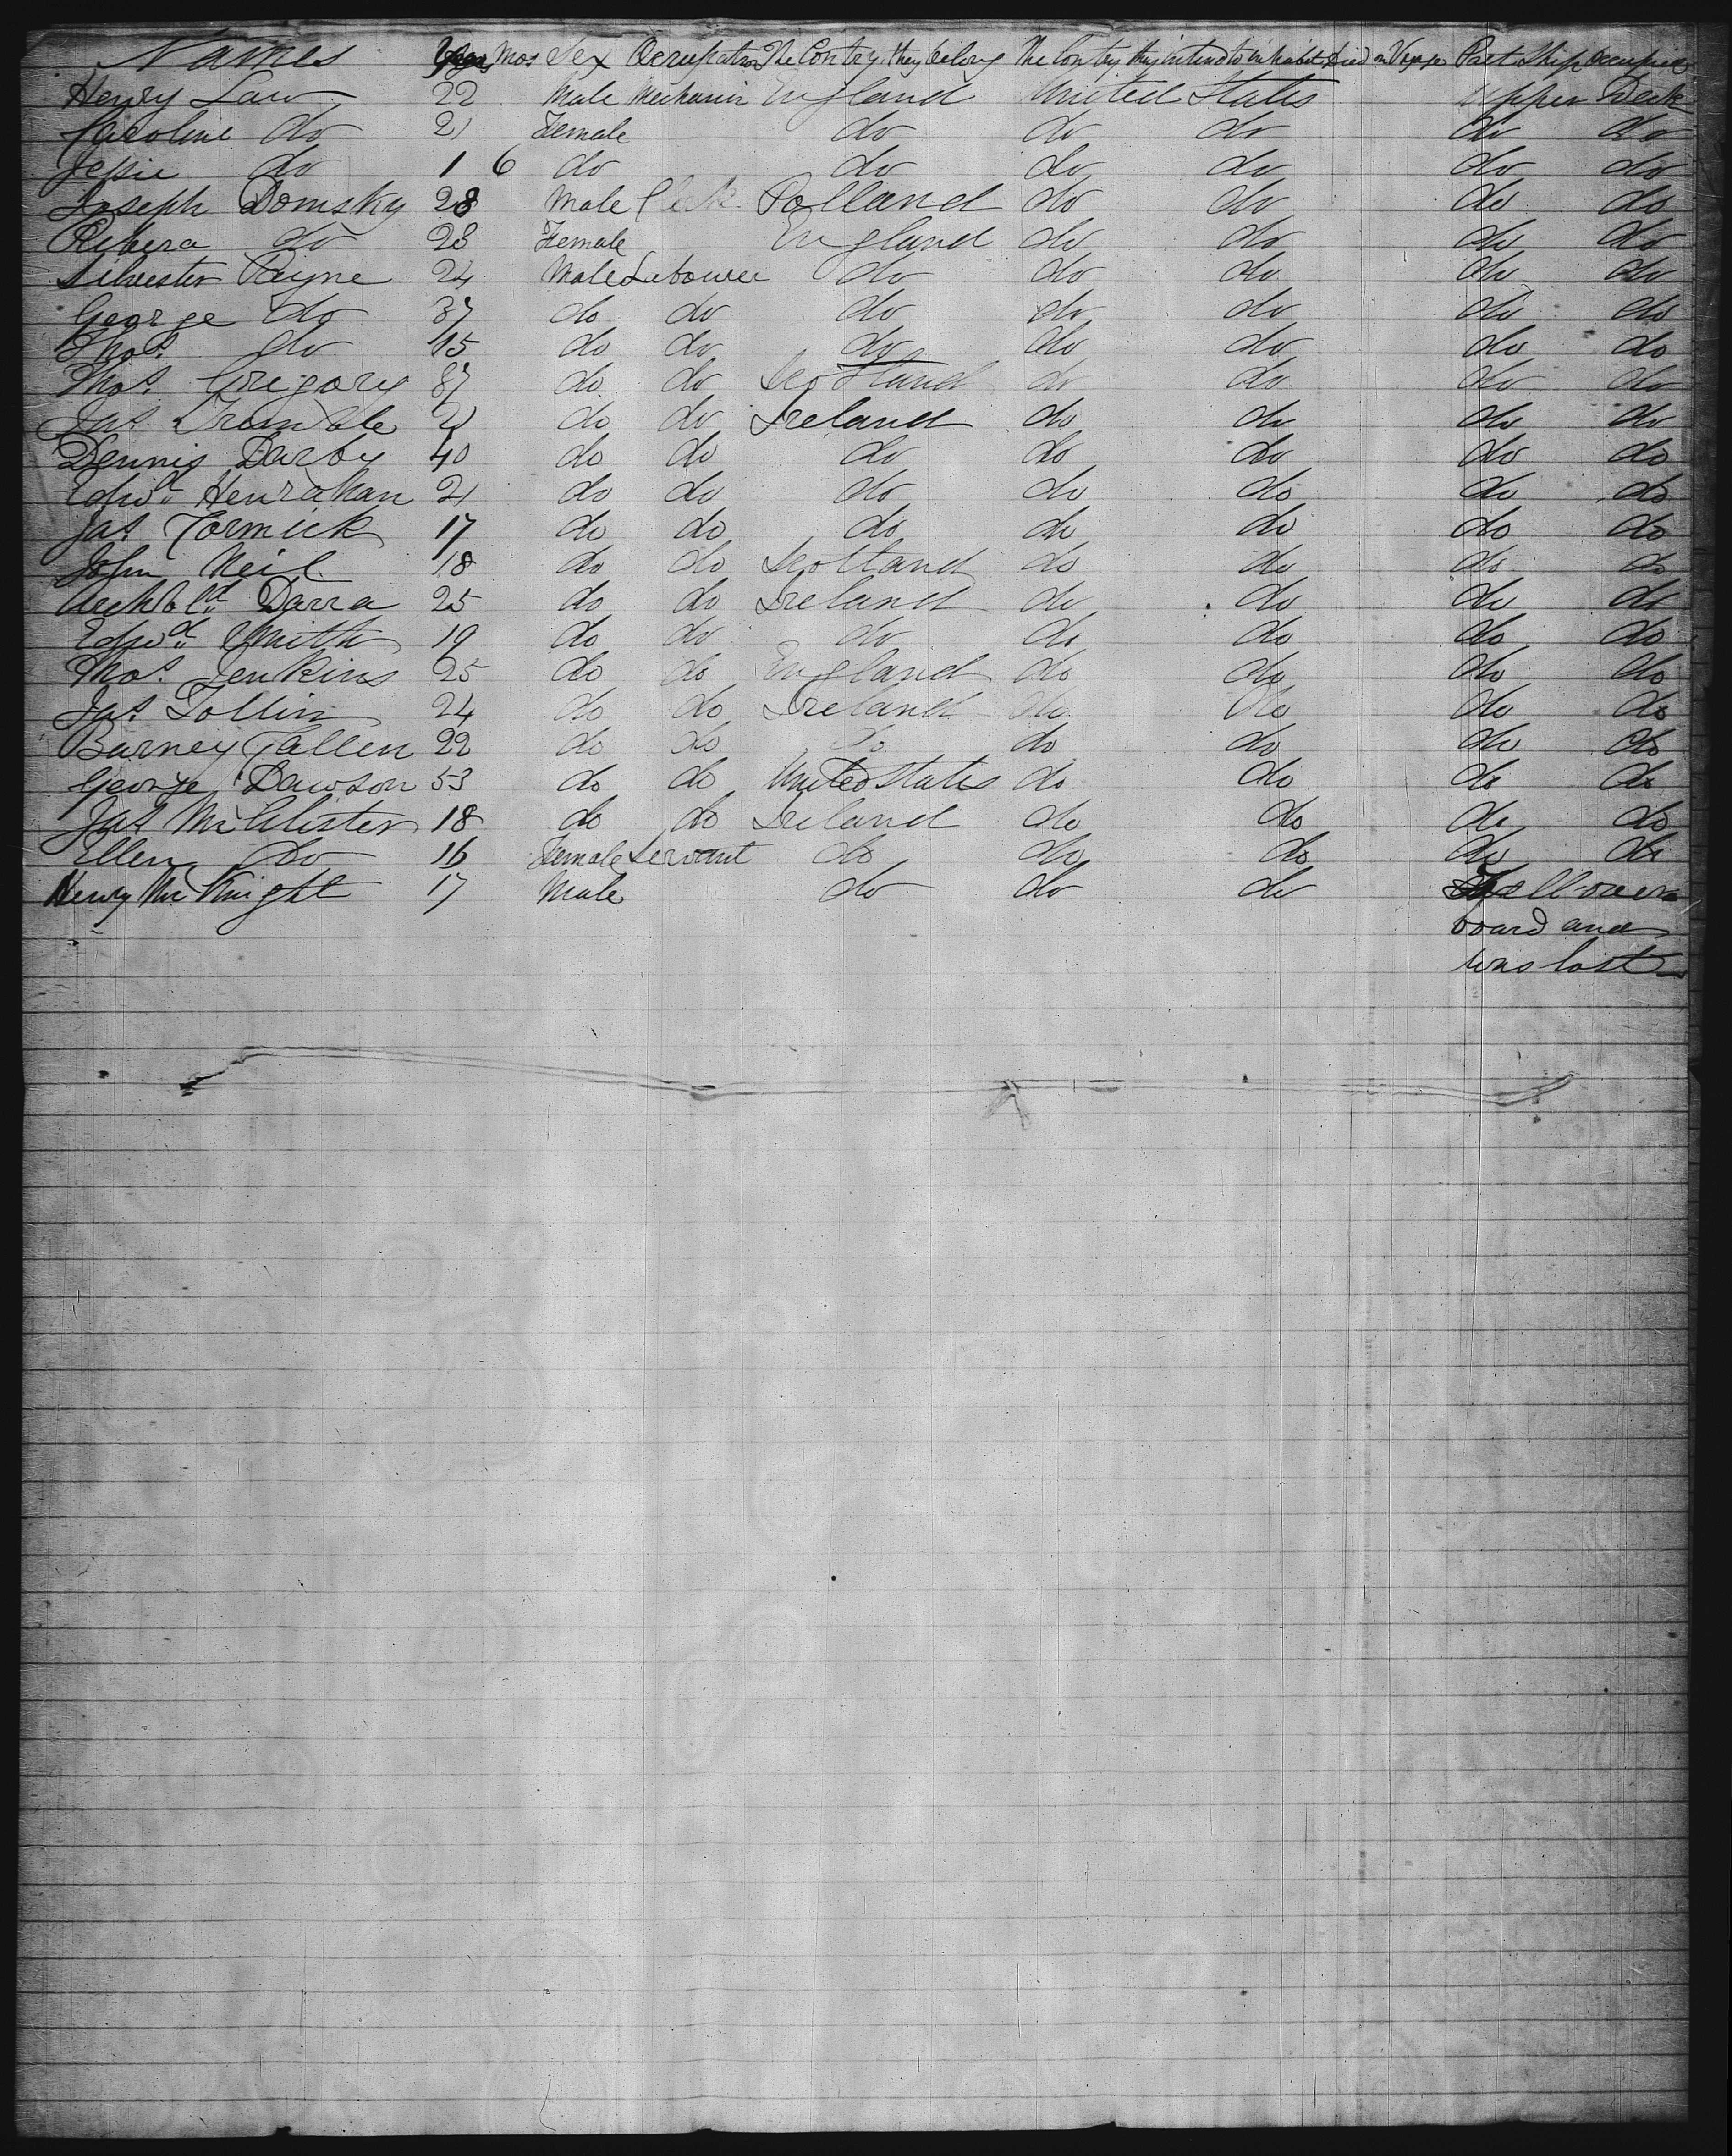 Names Years Mos Sex Occupation The Contry they belong The Contry they intend to inhabit Died on Voyage Part Ship occupied
Henry Law 22 Male Mechanic England United States Upper Deck
Caroline do 21 Female do do do do do
Jessie do 1 6 do do do do do do
Joseph Domsky 28 Male Clerk Polland do do do do
Rebera do 28 Female England do do do do
Silvester Payne 24 Male Labourer do do do do do
George do 37 do do do do do do do
Thos. do 15 do do do do do do do
Thos. Gregory 37 do do Scotland do do do do
Jas. Tremble 21 do do Ireland do do do do
Dennis Darby 40 do do do do do do do
Edwd. Henrahan 21 do do do do do do do
Jas Cormick 17 do do do do do do do
John Neil 18 do do Scotland do do do do
Archbld. Darra 25 do do Ireland do do do do
Edwd. Smith 19 do do do do do do do
Thos. Jenkins 25 do do England do do do do
Jas Tollin 24 do do Ireland do do do do
Barney Callen 22 do do do do do do do
George Dawson 53 do do United States do do do do
Jas McAlister 18 do do Ireland do do do do
Ellen do 16 Female Servant do do do do do
Henry McKnight 17 Male do do do Fell over=
board and
was lost